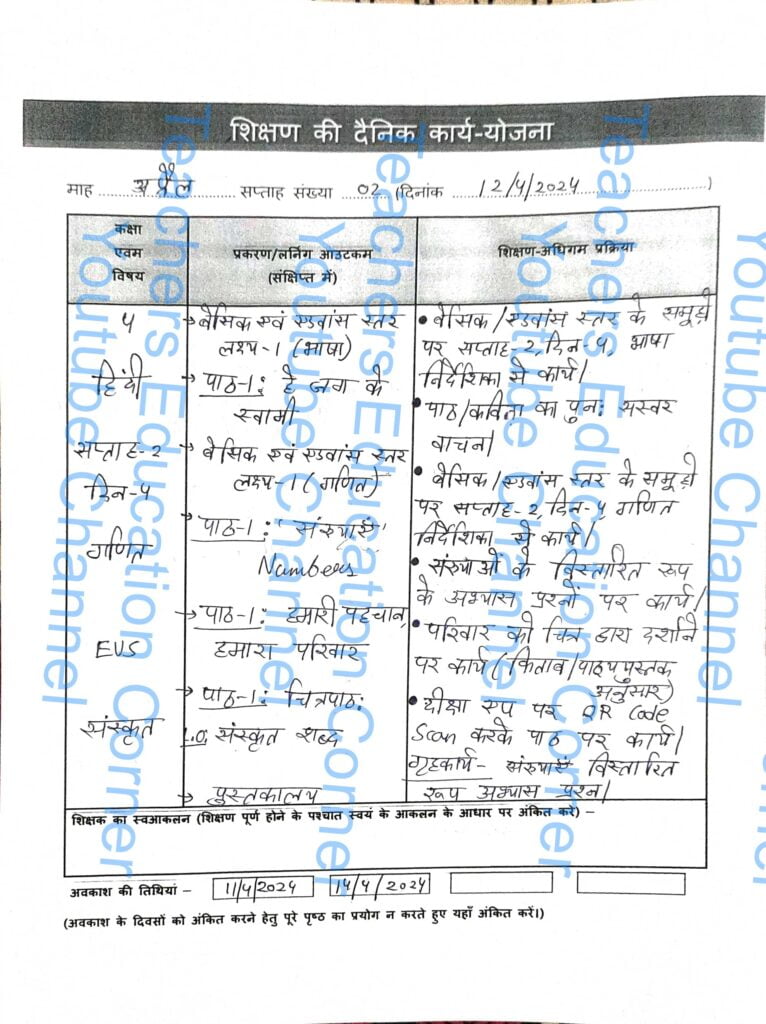 शिक्षण की दैनिक कार्य-योजना
माह अप्रैल सप्ताह संख्या 02 (दिनांक 12/4/2024)
कक्षा
एवम
विषय
प्रकरण/लर्निंग आउटकम
(संक्षिप्त में)
शिक्षण-अधिगम प्रक्रिया
५
हिंदी
सप्ताह-2
दिन-५
गणित
EVS
संस्कृत
→ बेसिक एवं एडवांस स्तर
लक्ष्य-1 (भाषा)
→ पाठ-1: हे जग के
स्वामी
→ बेसिक एवं एडवांस स्तर
लक्ष्य-1 (गणित)
→ पाठ-1: "संख्याएँ"
Numbers
→ पाठ-1: हमारी पहचान,
हमारा परिवार
→ पाठ-1: चित्रपाठ:
L.O: संस्कृत शब्द
→ पुस्तकालय
• बेसिक/एडवांस स्तर के समूहों
पर सप्ताह-2, दिन-५, भाषा
निर्देशिका से कार्य।
• पाठ/कविता का पुनः सस्वर
वाचन।
• बेसिक/एडवांस स्तर के समूहों
पर सप्ताह-2, दिन-५ गणित
निर्देशिका से कार्य।
• संख्याओं के विस्तारित रूप
के अभ्यास प्रश्नों पर कार्य।
• परिवार को चित्र द्वारा दर्शाने
पर कार्य (किताब/पाठ्यपुस्तक
अनुसार)
• दीक्षा एप पर QR Code
Scan करके पाठ पर कार्य।
गृहकार्य- संख्याएँ विस्तारित
रूप अभ्यास प्रश्न।
शिक्षक का स्वआकलन (शिक्षण पूर्ण होने के पश्चात स्वयं के आकलन के आधार पर अंकित करे) –
अवकाश की तिथियां – 11/4/2024 14/4/2024
(अवकाश के दिवसों को अंकित करने हेतु पूरे पृष्ठ का प्रयोग न करते हुए यहाँ अंकित करें।)
Teachers Education Corner
Youtube Channel
Teachers Education Corner
Youtube Channel
Teachers Education Corner
Youtube Channel
Youtube Channel